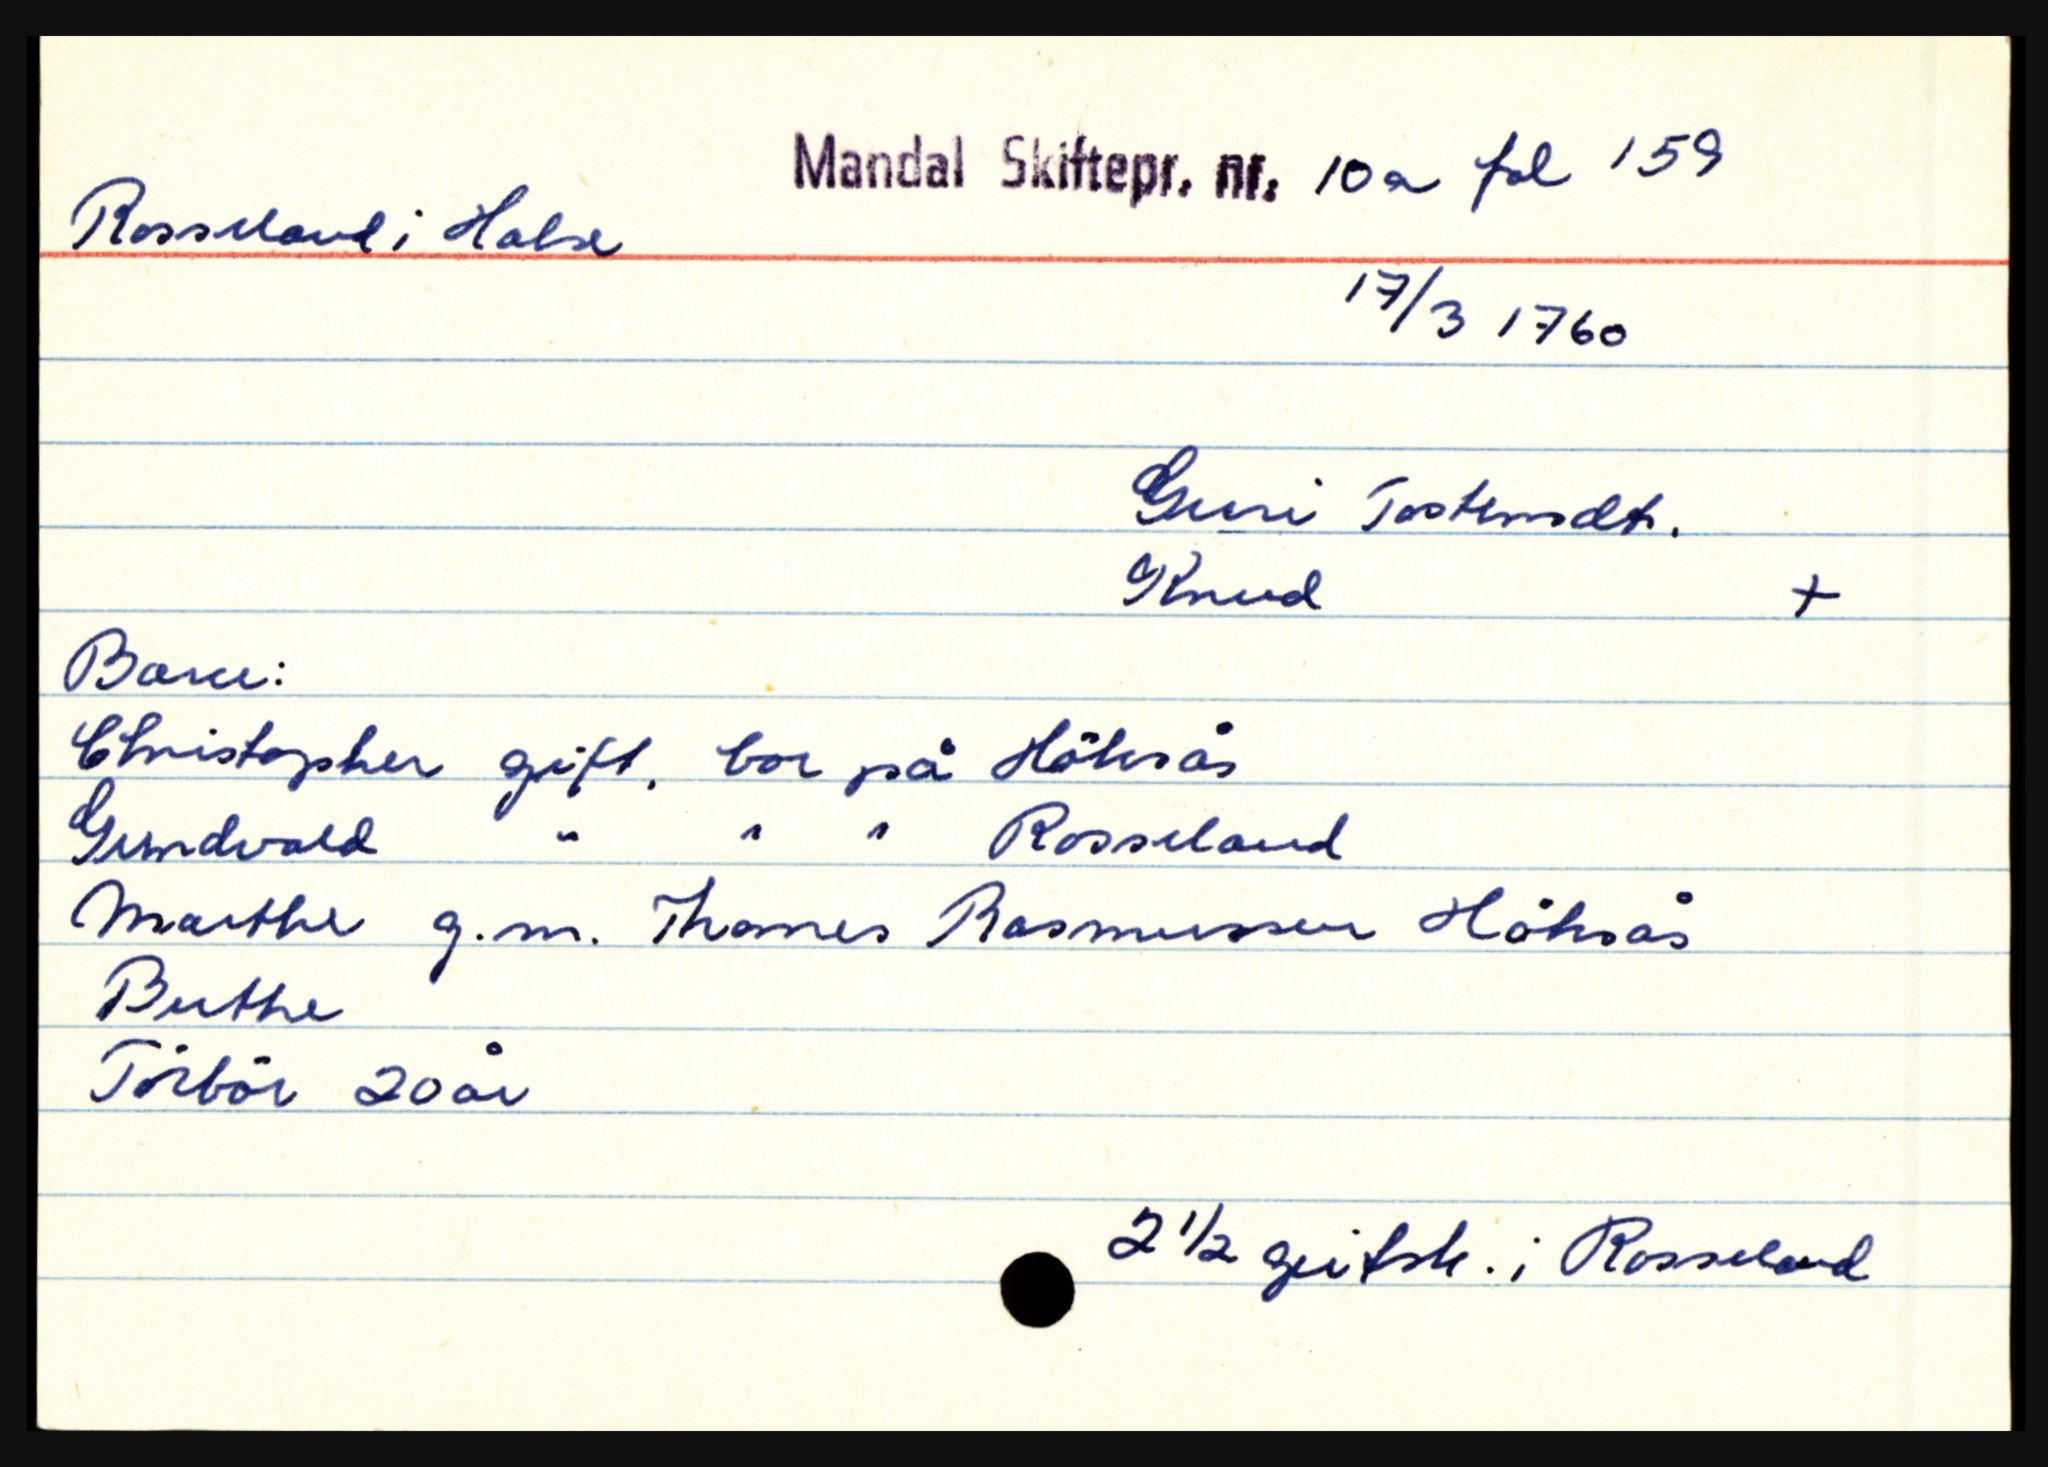 Mandal Skiftepr. nr. 10a fol 159
Rosseland i Halse
17/3 1760
Guri Tostensdtr.
Knud +
Barn:
Christopher gift, bor på Höhsås
Gundvald " " " Rosseland
Marthe g.m. Thomes Rasmussen Höhsås
Berthe
Torbör 20 år
2 1/2 geitsk. i Rosseland